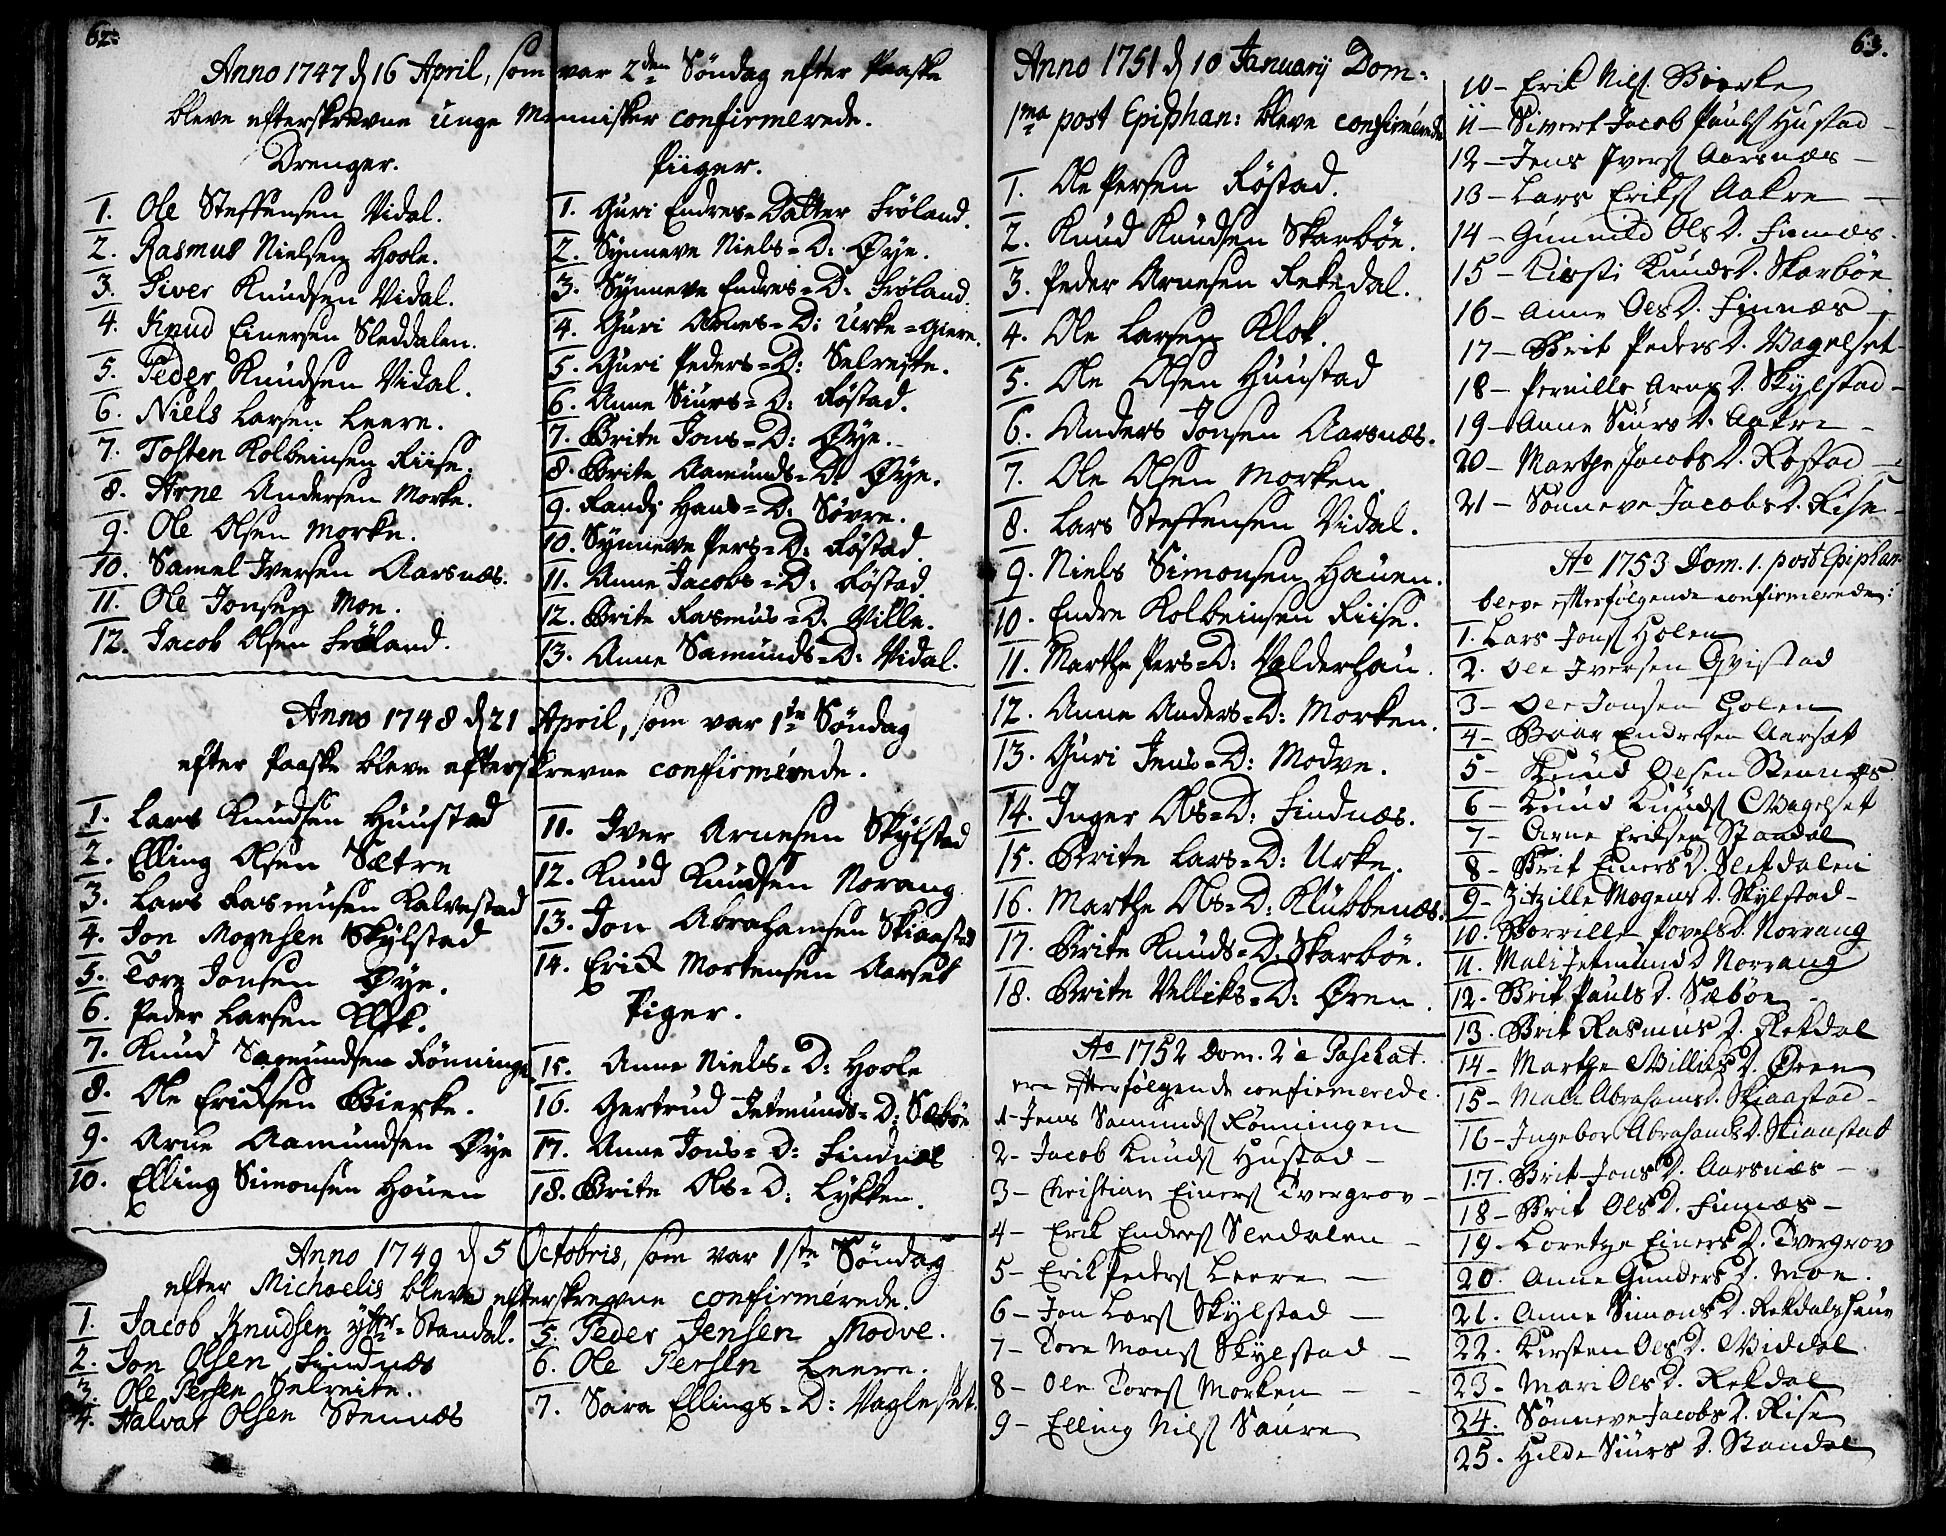 62.
Anno 1747 d 16 April, som var 2den Söndag efter Paaske
bleve efterskrevne Unge Mennisker confirmerede.
Drenger.
1. Ole Steffensen Vidal.
2. Rasmus Nielsen Hoole.
3. Siver Knudsen Vidal.
4. Knud Einersen Sleddalen.
5. Peder Knudsen Vidal.
6. Niels Larsen Leere.
7. Tosten Kolbeinsen Riise.
8. Arne Andersen Morke.
9. Ole Olsen Morke.
10. Samel Iversen Aarsnæs.
11. Ole Jonsen Moe.
12. Jacob Olsen Fröland.
Piiger.
1. Guri Endres=Datter Fröland.
2. Synneve Niels=D: Øye.
3. Synneve Endres=D: Fröland.
4. Guri Arnes=D: Urke=giere.
5. Guri Peders=D: Selreite.
6. Anne Siurs=D: Röstad.
7. Brite Jons=D: Øye.
8. Brite Aamunds=D: Øye.
9. Randj Hans=D: Sövre.
10. Synneve Pers=D: Röstad.
11. Anne Jacobs=D: Röstad.
12. Brite Rasmus=D: Ville.
13. Anne Samunds=D: Vidal.
Anno 1748 d 21 April, som var 1ste Söndag
efter Paaske bleve efterskrevne confirmérede.
1. Lars Knudsen Huustad
2. Elling Olsen Sætre
3. Lars Rasmusen Kalvestad
4. Jon Mognsen Skylstad
5. Tore Jonsen Øye.
6. Peder Larsen Klok.
7. Knud Samundsen Rönninge
8. Ole Ericksen Bierke.
9. Arne Aamundsen Øye
10. Elling Simonsen Houen
11. Iver Arnesen Skylstad
12. Knud Knudsen Norang
13. Jon Abrahamsen Skiaastad
14. Erick Mortensen Aarset
Piger.
15. Anne Niels=D: Hoole
16. Gertrud Jetmunds=D: Sæböe
17. Anne Jons=D: Findnæs
18. Brite Ols=D: Lykken.
Anno 1749 d 5 Octobris, som var 1ste Söndag
efter Michaelis bleve efterskrevne confirmérede.
1. Jacob Knudsen ytr=Standal.
2. Jon Olsen Findnæs
3. Ole Persen Selreite.
4. Halvar Olsen Stennæs
5. Peder Jensen Modve.
6. Ole Persen Leere.
7. Sara Ellings=D: Vagleset.
63.
Anno 1751 d 10 Januarij Dom:
1ma post Epiphan: bleve confirmérede
1. Ole Persen Röstad.
2. Knud Knudsen Skarböe.
3. Peder Arnesen Rekedal.
4. Ole Larsen Klok.
5. Ole Olsen Huustad
6. Anders Jonsen Aarsnæs.
7. Ole Olsen Morken.
8. Lars Steffensen Vidal.
9. Niels Simonsen Hauen.
10. Endre Kolbeinsen Riise.
11. Marthe Pers=D: Valderhau.
12. Anne Anders=D: Morken.
13. Guri Jens=D: Modve.
14. Inger Ols=D: Findnæs.
15. Brite Lars=D: Urke.
16. Marthe Ols=D: Klubbenæs.
17. Brite Knuds=D: Skarböe.
18. Brite Velleks=D: Øren.
Ao 1752 Dom. 2a Paschat.
ere effterfølgende confirmerede.
1- Jens Samunds Rönningen
2- Jacob Knuds Hustad -
3- Christian Einers Tvergrov -
4- Erik Enders Sledalen -
5- Erik Peders Leere -
6- Jon Lars Skylstad -
7- Tore Mons Skylstad -
8- Ole Tores Morken -
9- Elling Nils Saure
10- Erik Nils Bierke
11- Sivert Jacob Pauls Hustad -
12- Jens Ivers Aarsnæs -
13- Lars Eriks Aakre -
14- Gunnild Ols D. Finnæs.
15- Kirsti Knuds D. Skarböe
16- Anne Ols D. Finnæs
17- Brit Peders D. Wagelset
18- Pernille Arns D. Skylstad -
19- Anne Siurs D. Aakre -
20- Marthe Jacobs D. Røstad -
21- Sønneve Jacobs D. Rise -
Ao 1753 Dom. 1. post Epiphan
bleve effterfølgende confirmerede:
1. Lars Jons Holen
2. Ole Iversen Qvistad
3- Ole Jonsen Holen
4- Baar Endresen Aarsæt
5- Knud Olsen Stennæs
6- Knud Knuds Wagelset
7- Arne Eriksen Standal
8- Brit Einers D. Sletdalen
9- Zitzille Mogens D. Skylstad -
10. Borrille Povels D. Norrang
11. Mali Jetmund D Norrang
12- Brit Pauls D. Sæböe -
13. Brit Rasmus D. Rekdal
14- Marthe Williks D. Øren
15- Mali Abrahams D. Skiaastad -
16- Ingebor Abrahams D. Skiaastad
17. Brit Jons D. Aarsnæs -
18- Brit Ols D. Finnæs -
19. Loretze Einers D. Tvergrov
20. Anne Gunders D. Moe.
21. Anne Simons D. Rekdalshaug
22. Kirsten Ols D. Widdal
23- Mari Ols D. Rekdal
24. Sønneve Jacobs D. Rise
25. Hilde Siurs D. Standal